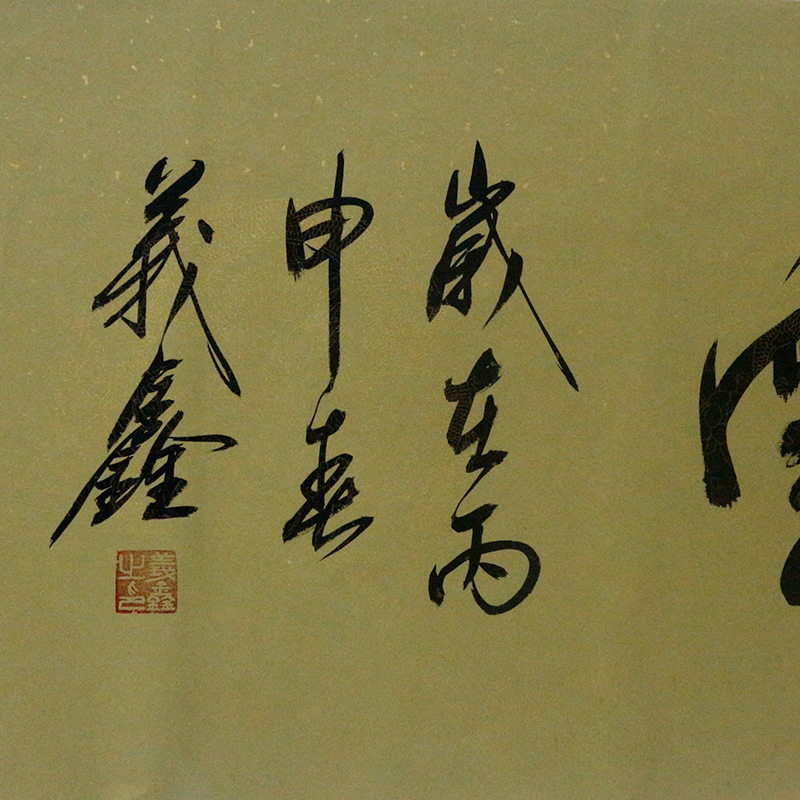 歲在丙
申春
義鑫
義鑫之印